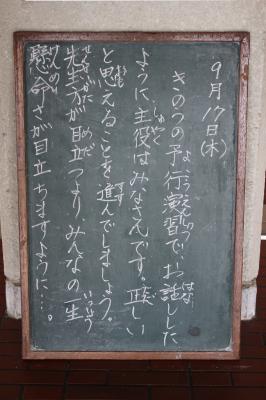 9月17日(木)
きのうの予行演習で、お話しした
ように主役はみなさんです。正しい
と思えることを進んでしましょう。
先生方が目立つより みんなの一生
懸命さが目立ちますように…。